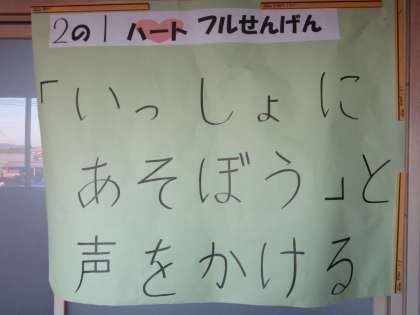 2の1 ハートフルせんげん
「いっしょに
あそぼう」と
声をかける